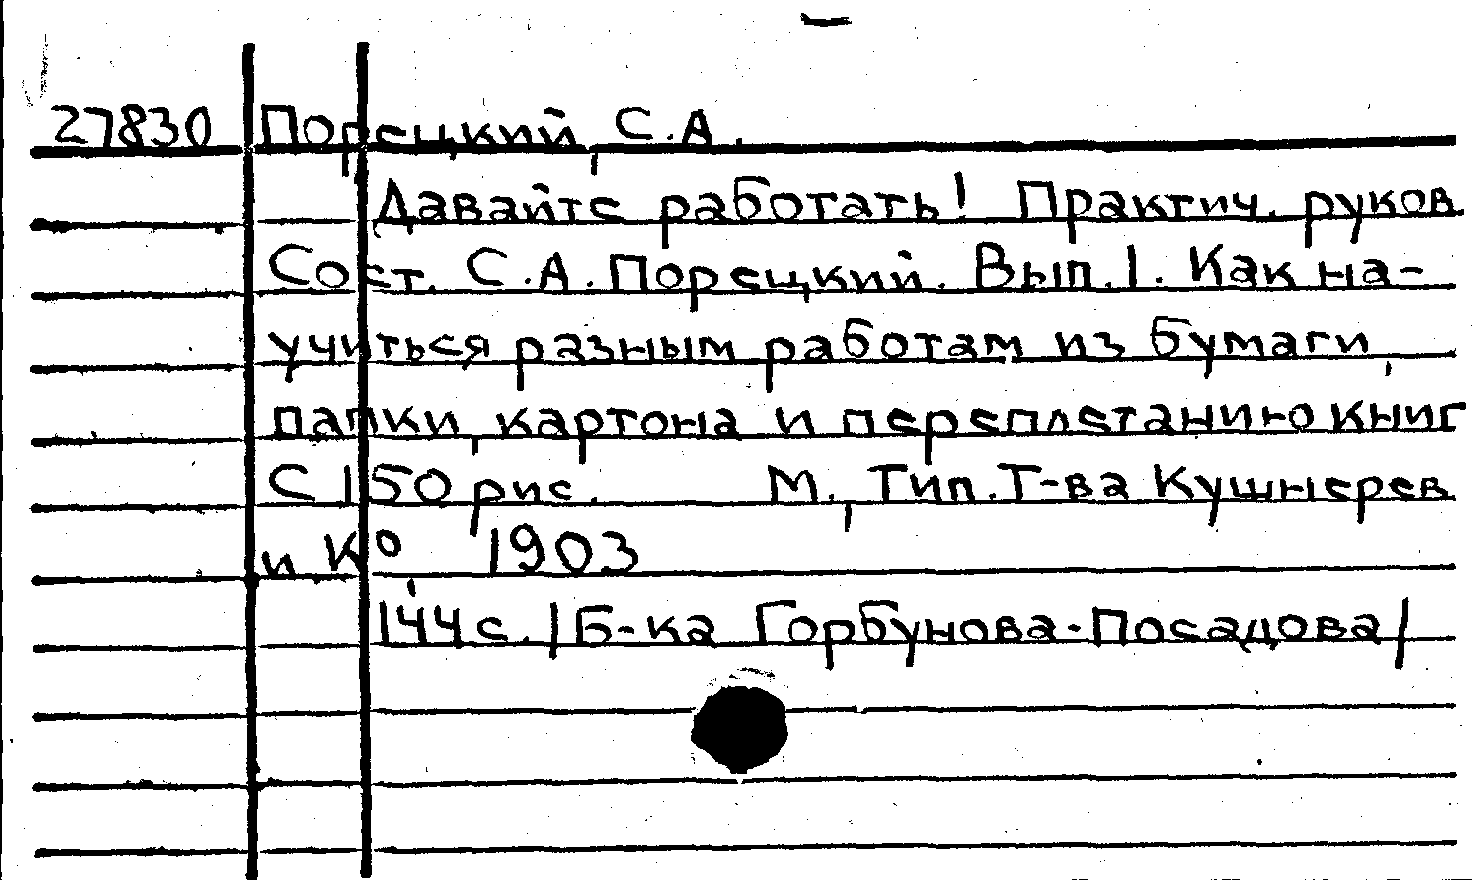 27830 Порецкий, С.А.
Давайте работать! Практич. руков
Сост. С.А.Порецкий. Вып.1. Как на-
учиться разным работам из бумаги,
папки, картона и переплетанию книг
С 150 рис. М., Тип.Т-ва Кушнерев
и К⁰, 1903
144с. /Б-ка Горбунова-Посадова/